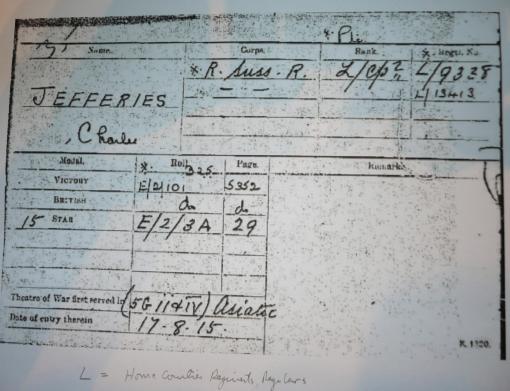 * Pte
Name. Corps. Rank. * Regtl. No.
* R. Suss. R. L/Cpl L/9338
JEFFERIES L/13413
, Charles
Medal. * Roll. Page. Remarks.
325
VICTORY E/2/101 5352
BRITISH do do
15 STAR E/2/3A 29
Theatre of War first served in (5G ii & IV) Asiatic
Date of entry therein 17-8-15.
K. 1320.
L = Home Counties Regiments Regulars